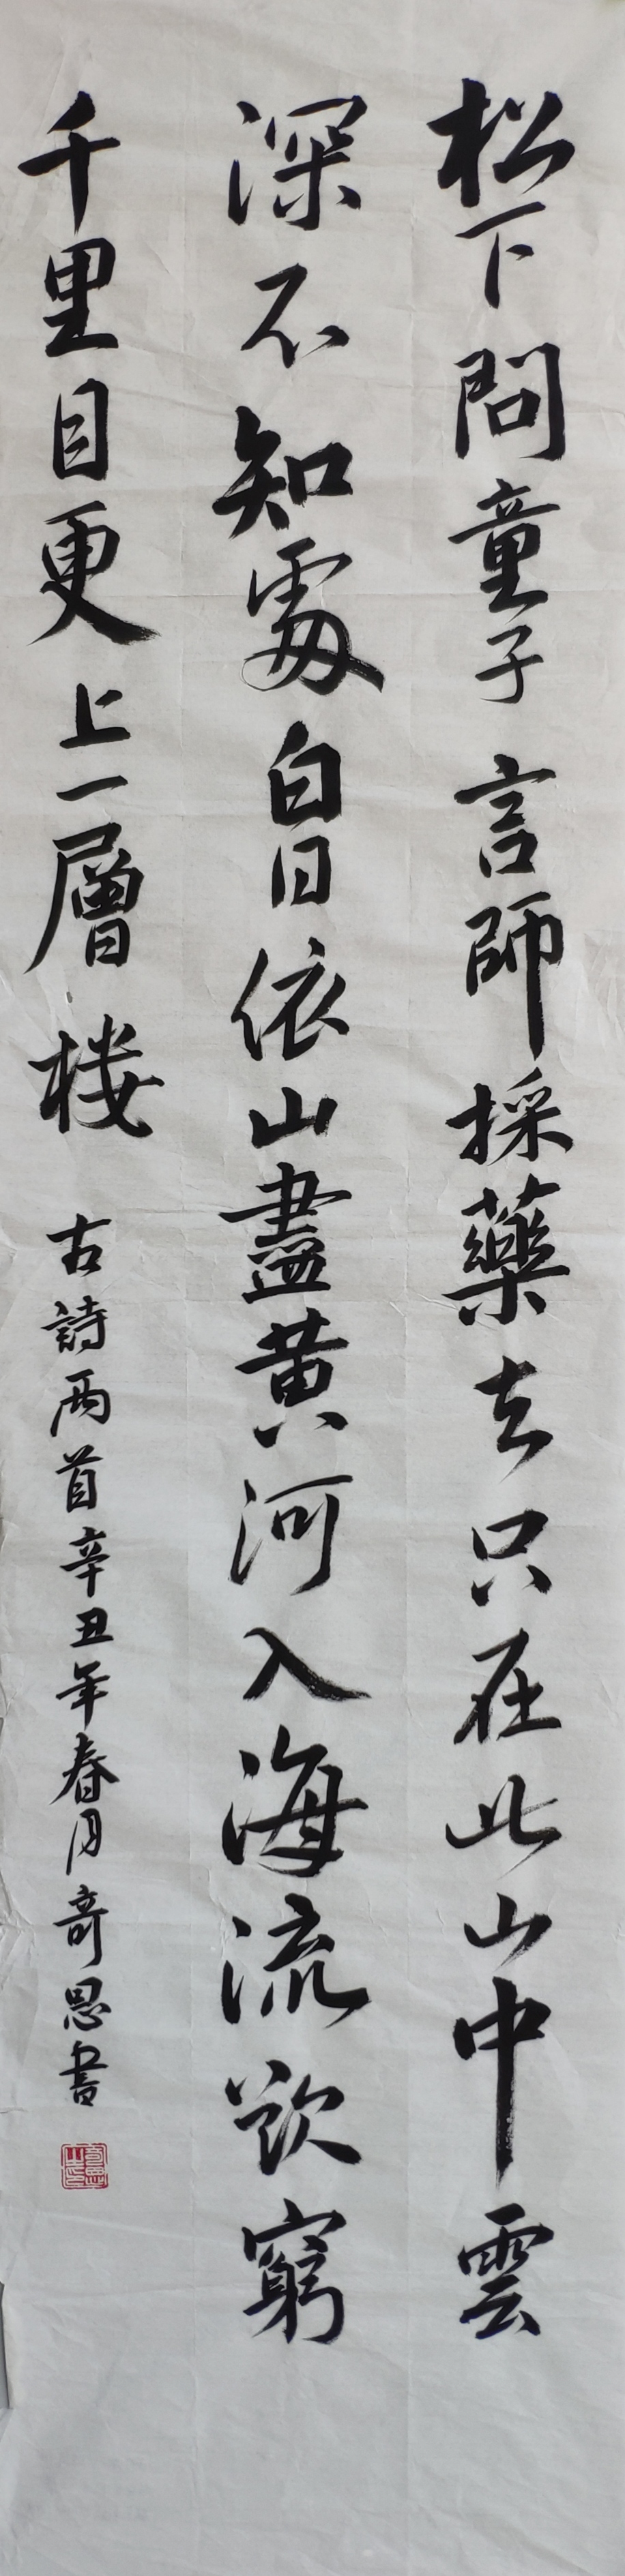 松下問童子言師採藥去只在此山中雲
深不知處白日依山盡黄河入海流欲窮
千里目更上一層楼
古詩两首辛丑年春月奇思書